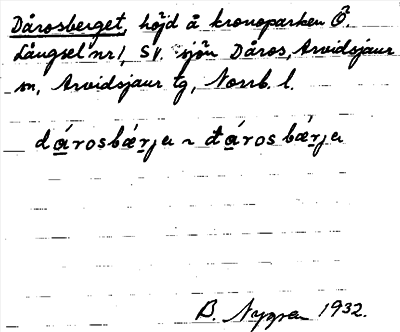 Dårosberget, höjd å kronoparken Ö.
Långsel nr 1, SV. sjön Dåros, Arvidsjaur
sn, Arvidsjaur tg, Norrb. l.
dárosbǽrja ~ đárosbǽrja
B. Nygren 1932.